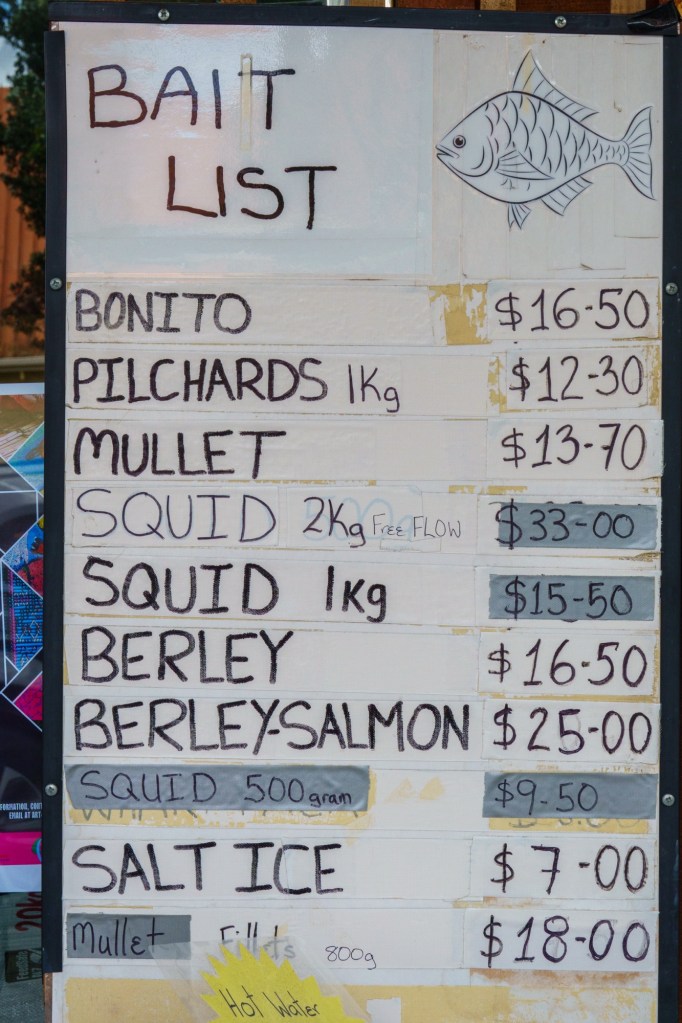 BAIT
LIST
BONITO $16-50
PILCHARDS 1Kg $12-30
MULLET $13-70
SQUID 2Kg Free FLOW $33-00
SQUID 1kg $15-50
BERLEY $16-50
BERLEY-SALMON $25-00
SQUID 500gram $9-50
SALT ICE $7-00
Mullet Fillets 800g $18-00
Hot Water
EMAIL AT ART
20kg